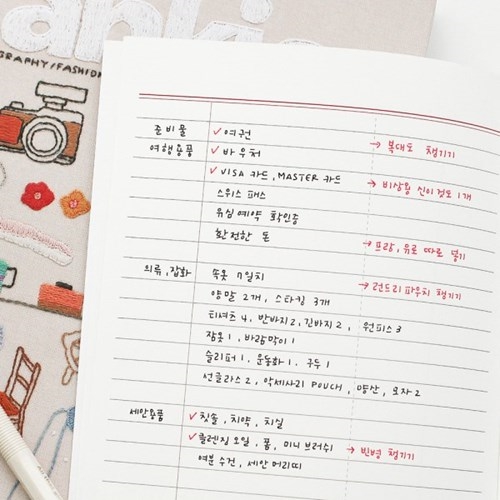 GRAPHY/FASHION
준비물 ✓여권 → 복대도 챙기기
여행용품 ✓바우처
✓VISA 카드, MASTER 카드 → 비상용 신이정도 1개
스위스 패스
유심예약 확인증
환전한 돈 → 프랑, 유로 따로 넣기
의류, 잡화 속옷 7일치 → 런드리파우치 챙기기
양말 2개, 스타킹 3개
티셔츠 4, 반바지2, 긴바지2, 원피스3
잠옷1, 바람막이1
슬리퍼1, 운동화1, 구두1
선글라스2, 악세사리 POUCH, 양산, 모자2
세안용품 ✓칫솔, 치약, 치실
✓클렌징 오일, 폼, 미니 브러쉬 → 빈병 챙기기
여분 수건, 세안 머리띠